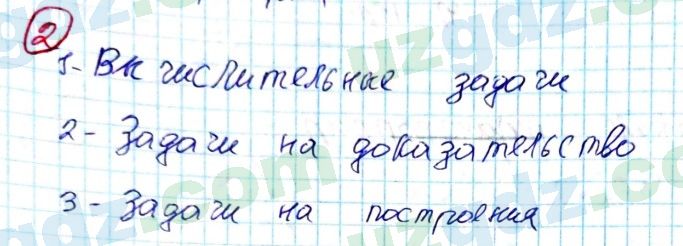 2
1- Вычислительные задачи
2- Задачи на доказательство
3- Задачи на построения